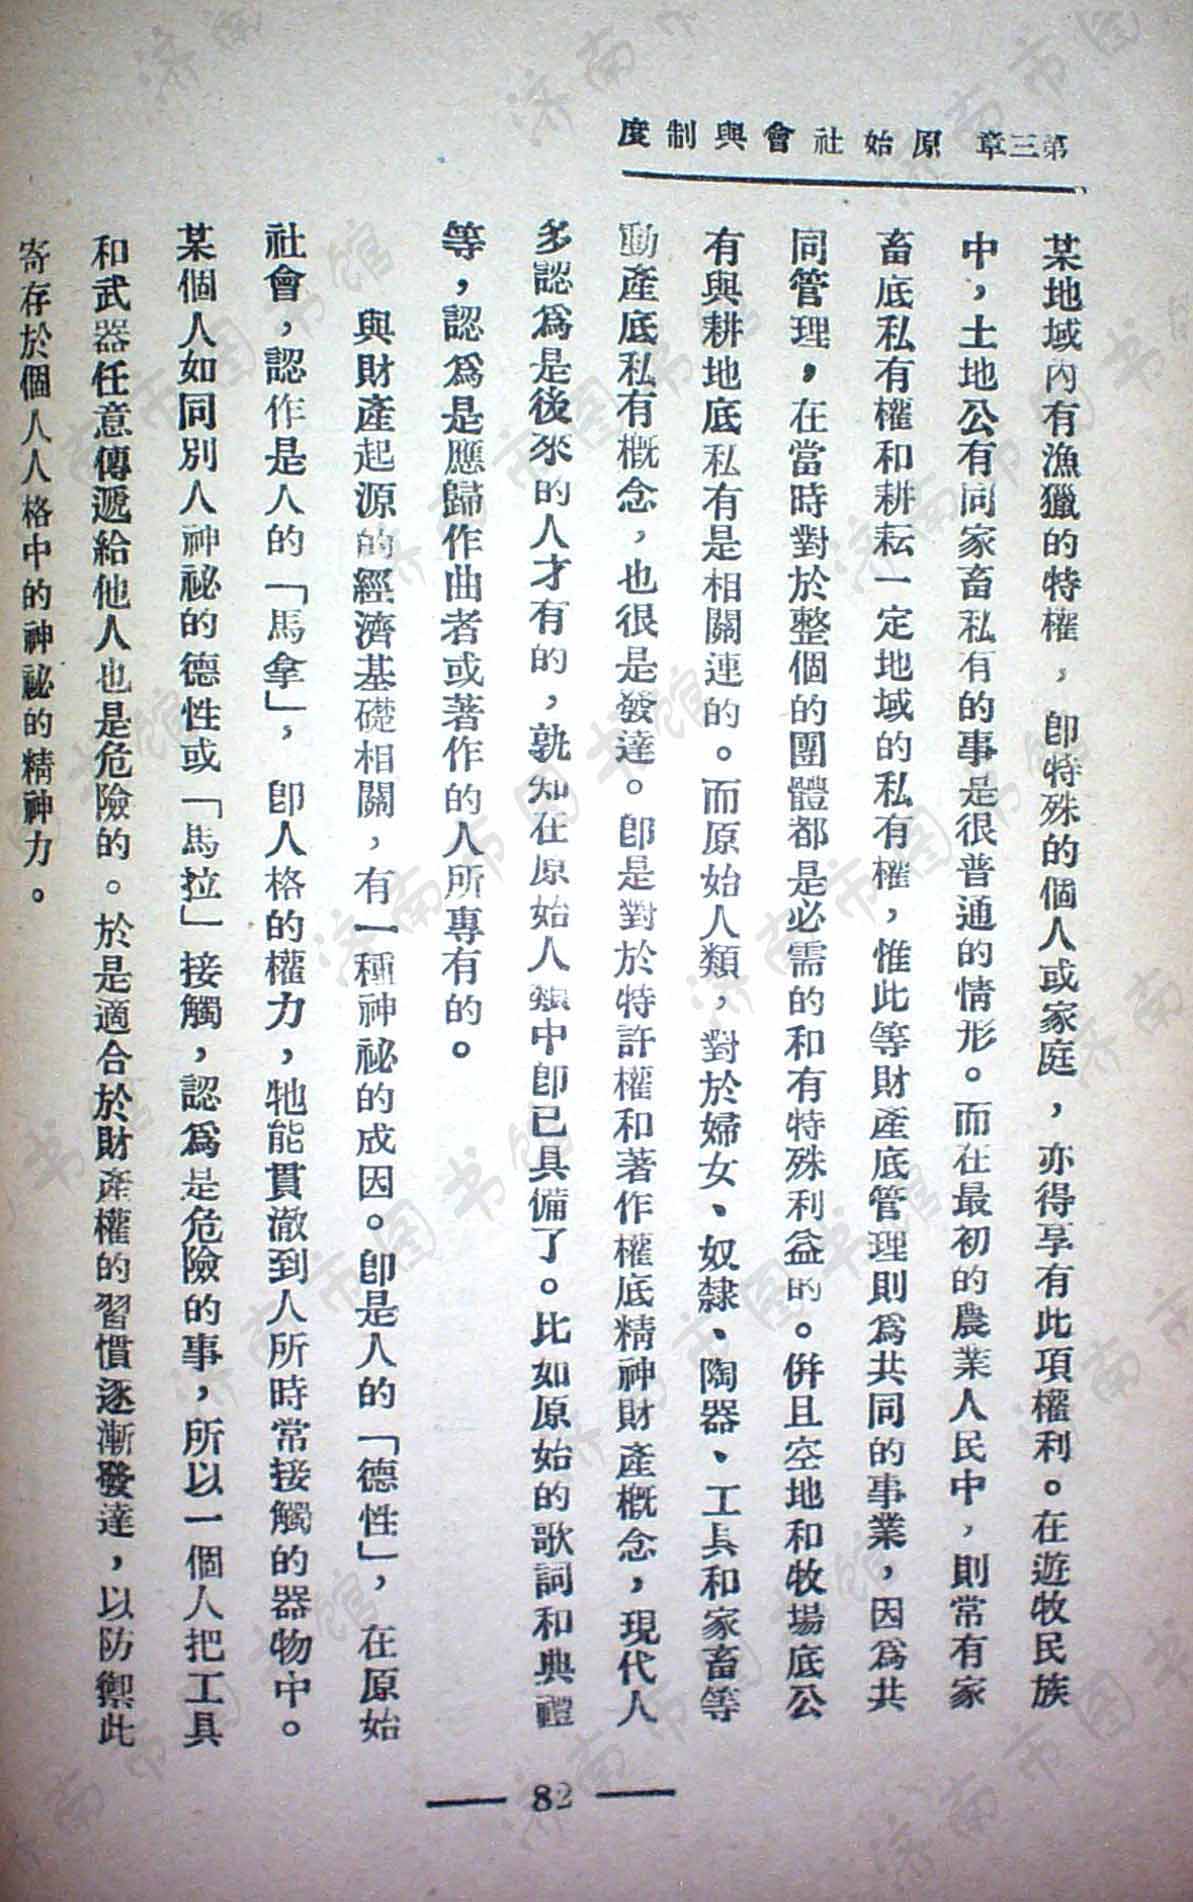 第三章 原始社會與制度
某地域內有漁獵的特權，卽特殊的個人或家庭，亦得享有此項權利。在遊牧民族
中，土地公有同家畜私有的事是很普通的情形。而在最初的農業人民中，則常有家
畜底私有權和耕耘一定地域的私有權，惟此等財產底管理則爲共同的事業，因爲共
同管理，在當時對於整個的團體都是必需的和有特殊利益的。倂且空地和牧場底公
有與耕地底私有是相關連的。而原始人類，對於婦女、奴隸、陶器、工具和家畜等
動產底私有概念，也很是發達。卽是對於特許權和著作權底精神財產概念，現代人
多認爲是後來的人才有的，孰知在原始人類中卽已具備了。比如原始的歌詞和典禮
等，認爲是應歸作曲者或著作的人所專有的。
與財產起源的經濟基礎相關，有一種神祕的成因。卽是人的「德性」，在原始
社會，認作是人的「馬拿」，卽人格的權力，牠能貫澈到人所時常接觸的器物中。
某個人如同別人神祕的德性或「馬拉」接觸，認爲是危險的事，所以一個人把工具
和武器任意傳遞給他人也是危險的。於是適合於財產權的習慣逐漸發達，以防禦此
寄存於個人人格中的神祕的精神力。
— 82 —
济南市图书馆